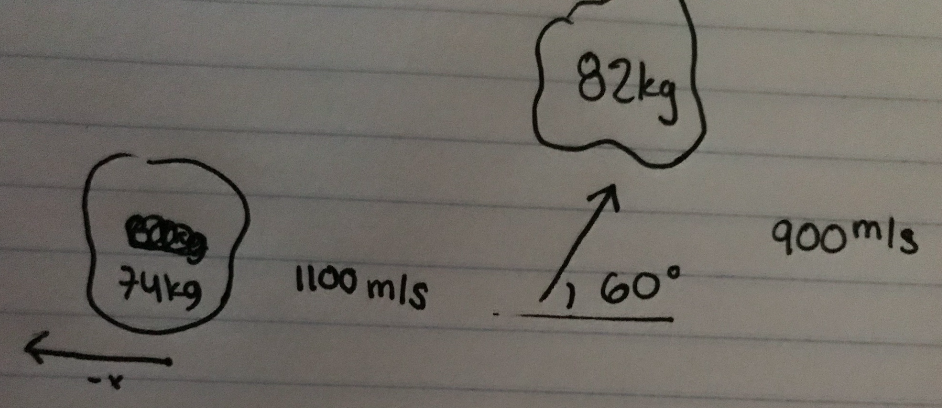 82kg
900m/s
74kg
1100 m/s
60°
-x